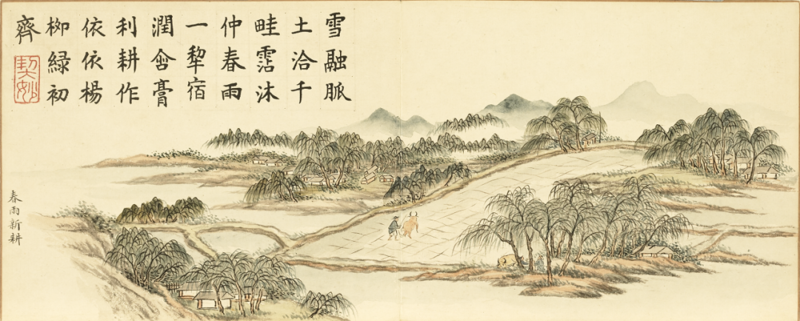 雪融脈
土洽千
畦霑沐
仲春雨
一犂宿
潤含膏
利耕作
依依楊
栁緑初
齊
契妙
春雨新耕